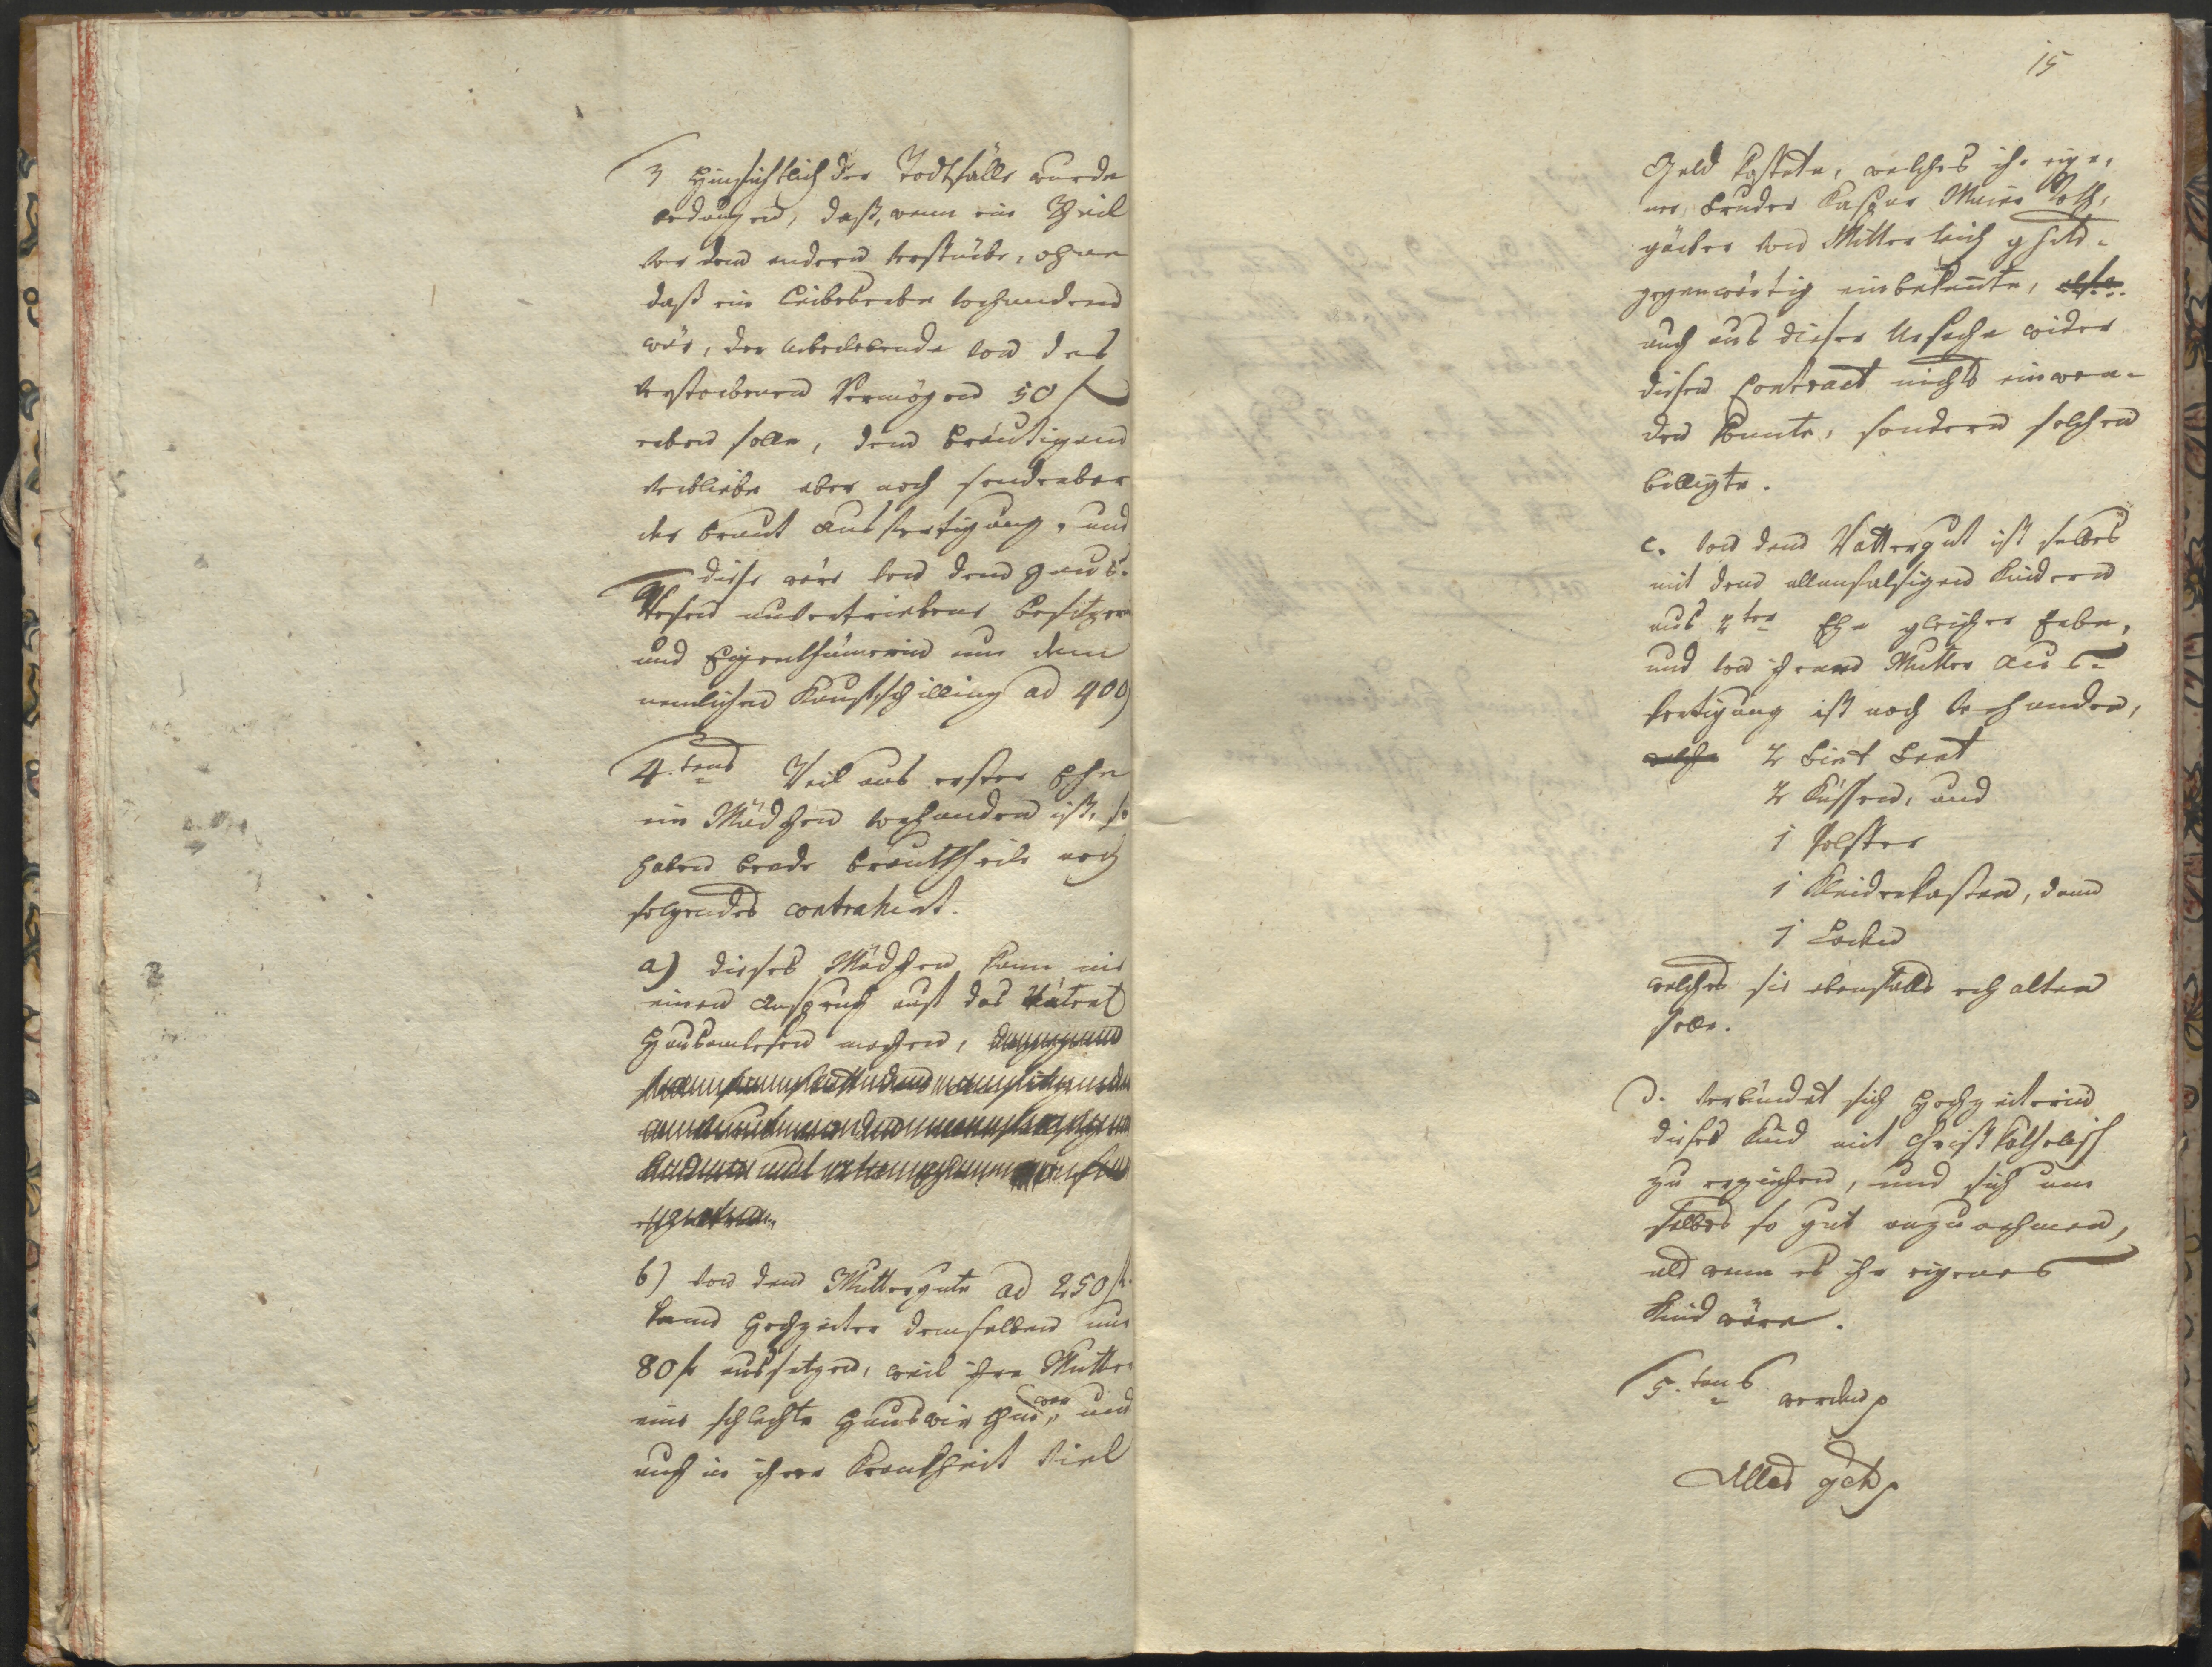 3 Hinsichtlich der Todtfälle wurde
bedungen, daß, wenn ein Theil
vor dem andern verstürbe, ohne
daß ein Leibeserbe vorhanden
wär, der Ueberlebende von des
verstorbenen Vermögen 50 f
erben solle, dem Bräutigam
verbliebe aber noch sonderbar
der Braut Ausfertigung, und
diese wäre von dem Haus-
wesen unvertriebene Besitzerin
und Eigenthümerin um dem
nemlichen Kaufschilling ad 400
4.tens Weil aus erster Ehe
ein Mädchen vorhanden ist, so
haben beede Brauttheile noch
folgendes contrahirt.
a) dieses Mädchen kann nie
einen Anspruch auf das
Hausanwesen machen,
b) von dem Muttergute ad 250 f.
kann Hochzeiter demselben nur
80 f aussetzen, weil ihre Mutter
eine schlechte Hauswirthin war, und
auch in ihrer Krankheit viel
15
Geld kostete, welches ihr eige-
ner Bruder Kaspar Maier
von Mitterteich
gegenwärtig einbekennte,
auch aus dieser Ursache wider
diesen Contract nichts einwen-
den konnte, sondern solchen
billigte.
c. von dem Vattergut ist selbes
mit den allenfalsigen Kindern
aus 2ter Ehe gleicher Erbe,
und von ihrer Mutter Aus-
fertigung ist noch vorhanden,
welche 2 Bett
2 Küssen, und
1 Polster
1 Kleiderkasten, dann
1
welches sie ebenfalls erhalten
solle.
d. verbündet sich Hochzeiterin
dieses Kind mit Christkatholisch
zu erziehen, und sich um
selbes so gut anzunehmen,
als wenn es ihr eigenes
Kind wäre.
5.tens werden
Alles